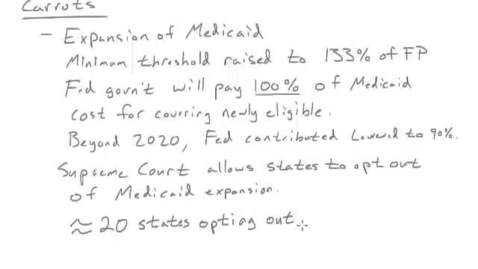 Carrots
- Expansion of Medicaid
Minimum threshold raised to 133% of FP
Fed govn't will pay 100% of Medicaid
cost for covering newly eligible.
Beyond 2020, Fed contributed lowered to 90%.
Supreme Court allows states to opt out
of Medicaid expansion.
≈ 20 states opting out